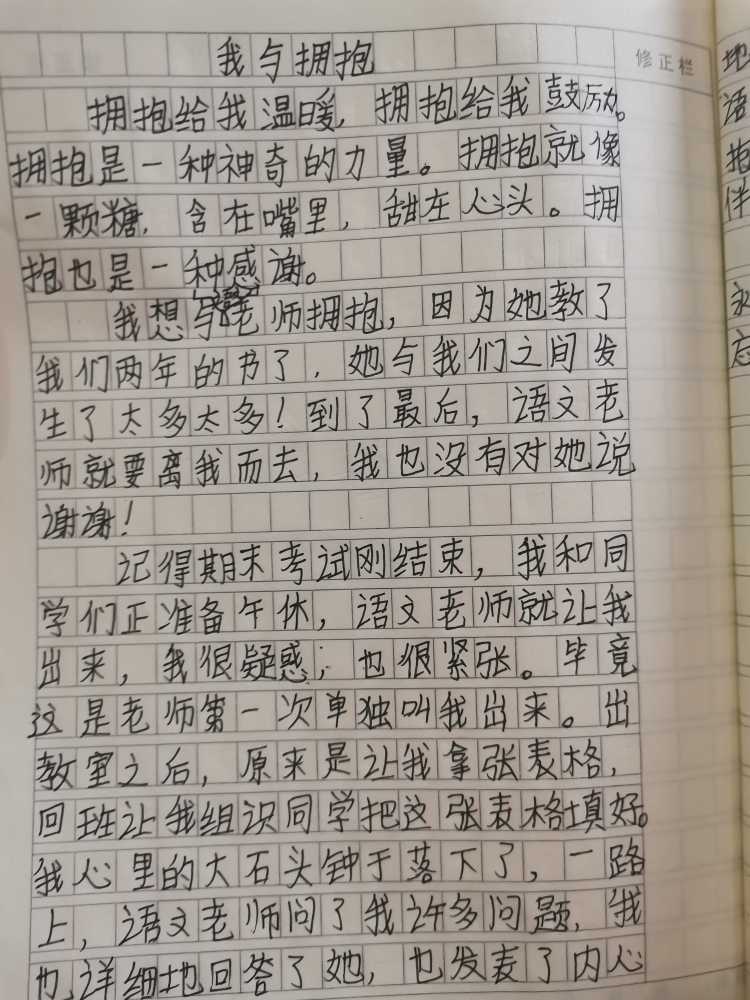 我与拥抱
修正栏
拥抱给我温暖，拥抱给我鼓励。
拥抱是一种神奇的力量。拥抱就像
一颗糖，含在嘴里，甜在心头。拥
抱也是一种感谢。
我想与老师拥抱，因为她教了
我们两年的书了，她与我们之间发
生了太多太多！到了最后，语文老
师就要离我而去，我也没有对她说
谢谢！
记得期末考试刚结束，我和同
学们正准备午休，语文老师就让我
出来，我很疑惑；也很紧张。毕竟
这是老师第一次单独叫我出来。出
教室之后，原来是让我拿张表格，
回班让我组识同学把这张表格填好。
我心里的大石头钟于落下了，一路
上，语文老师问了我许多问题，我
也详细地回答了她，也发表了内心
地
语
抱
伴
永
忘